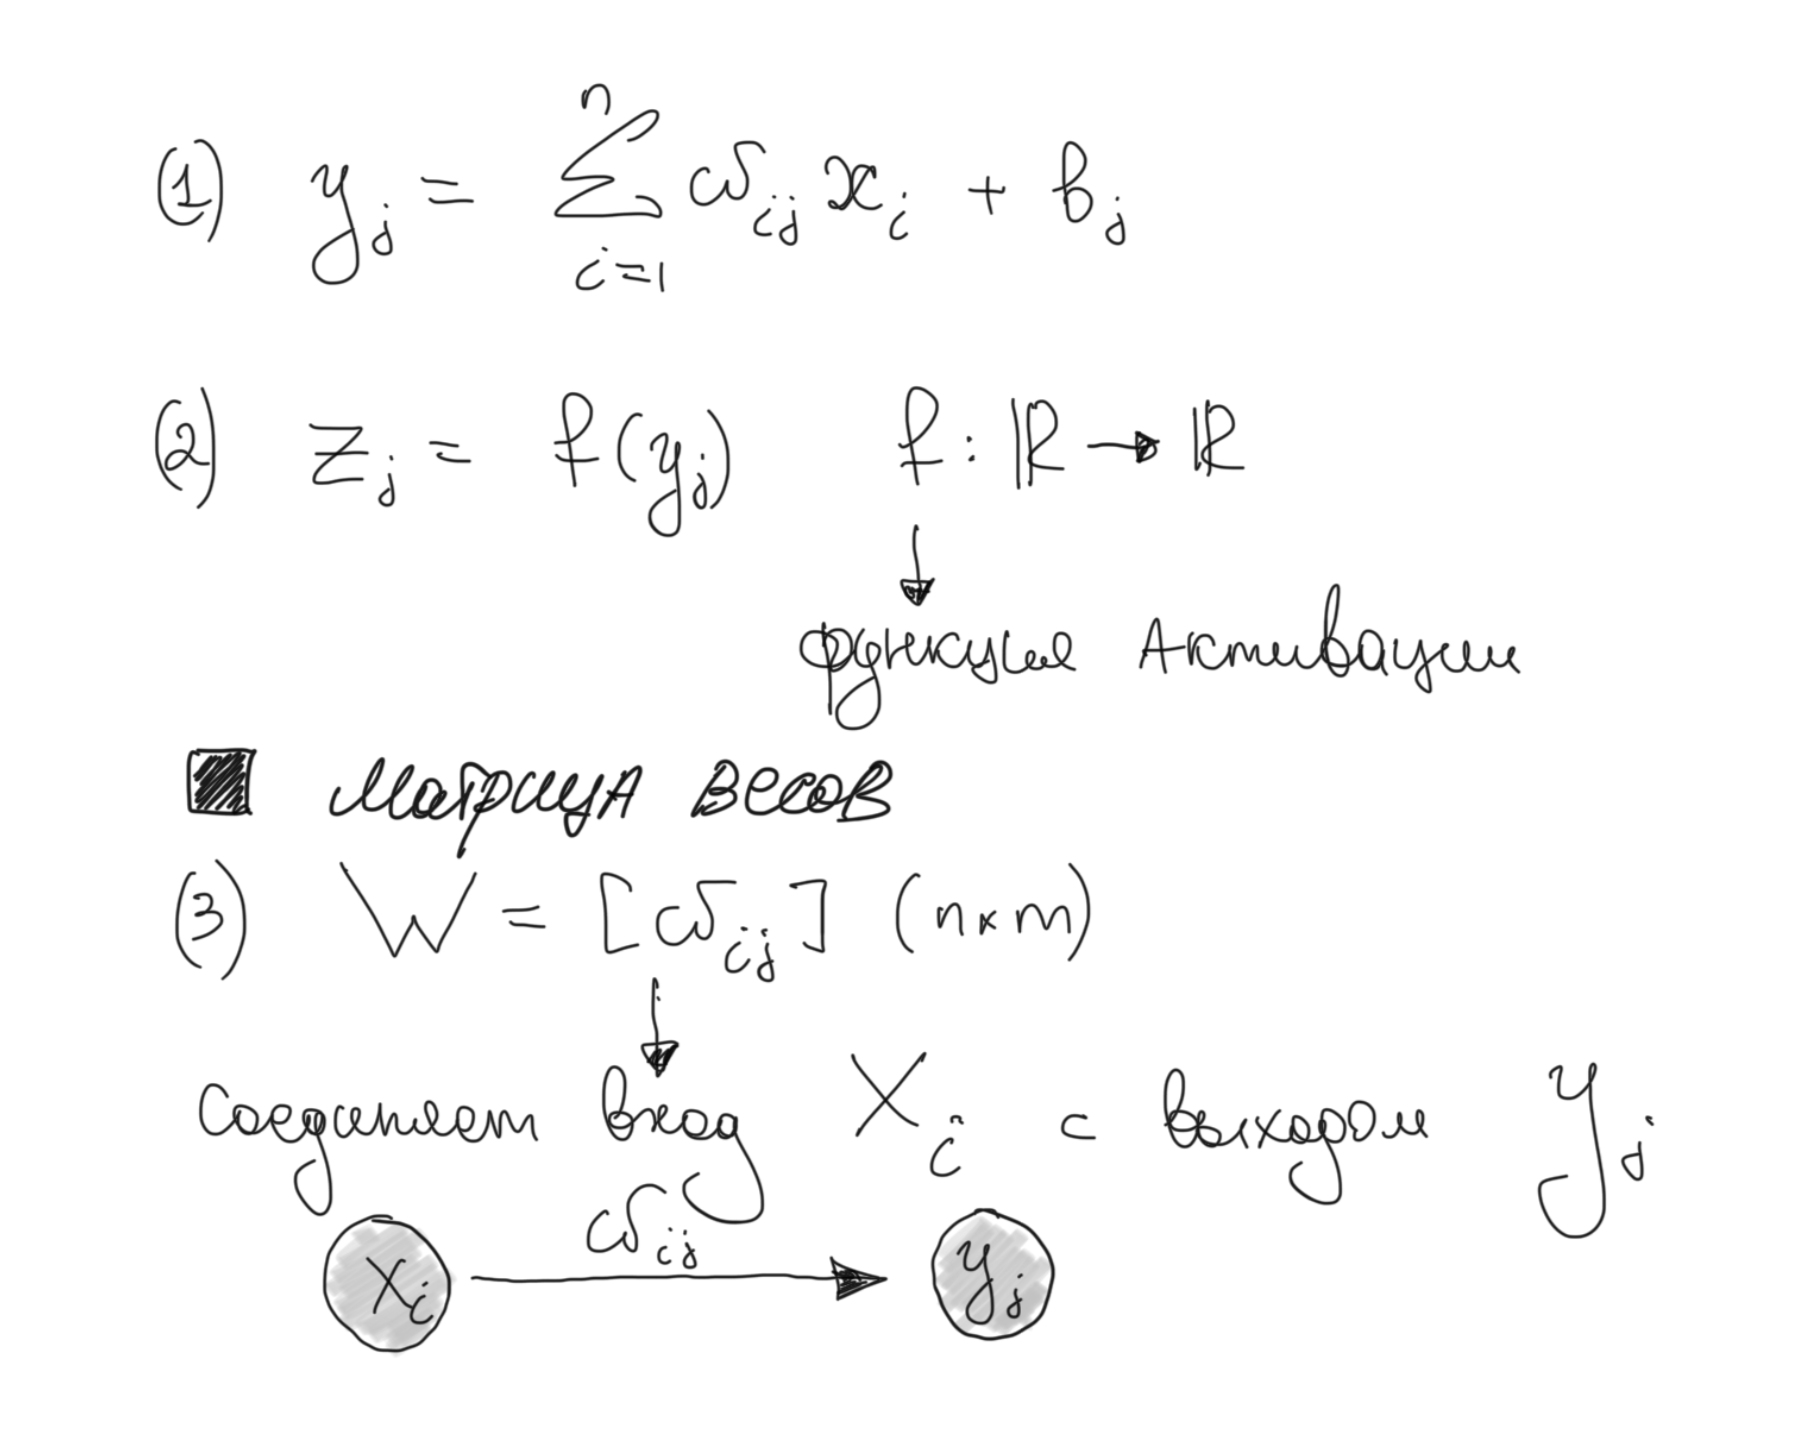 (1) y_j = ∑_{i=1}^{n} ω_{ij} x_i + b_j
(2) z_j = f(y_j) f : ℝ → ℝ
↓
функция Активации
■ Матрица весов
(3) W = [ω_{ij}] (n×m)
↓
Соединяет вход X_i с выходом y_j
ω_{ij}
x_i → y_j